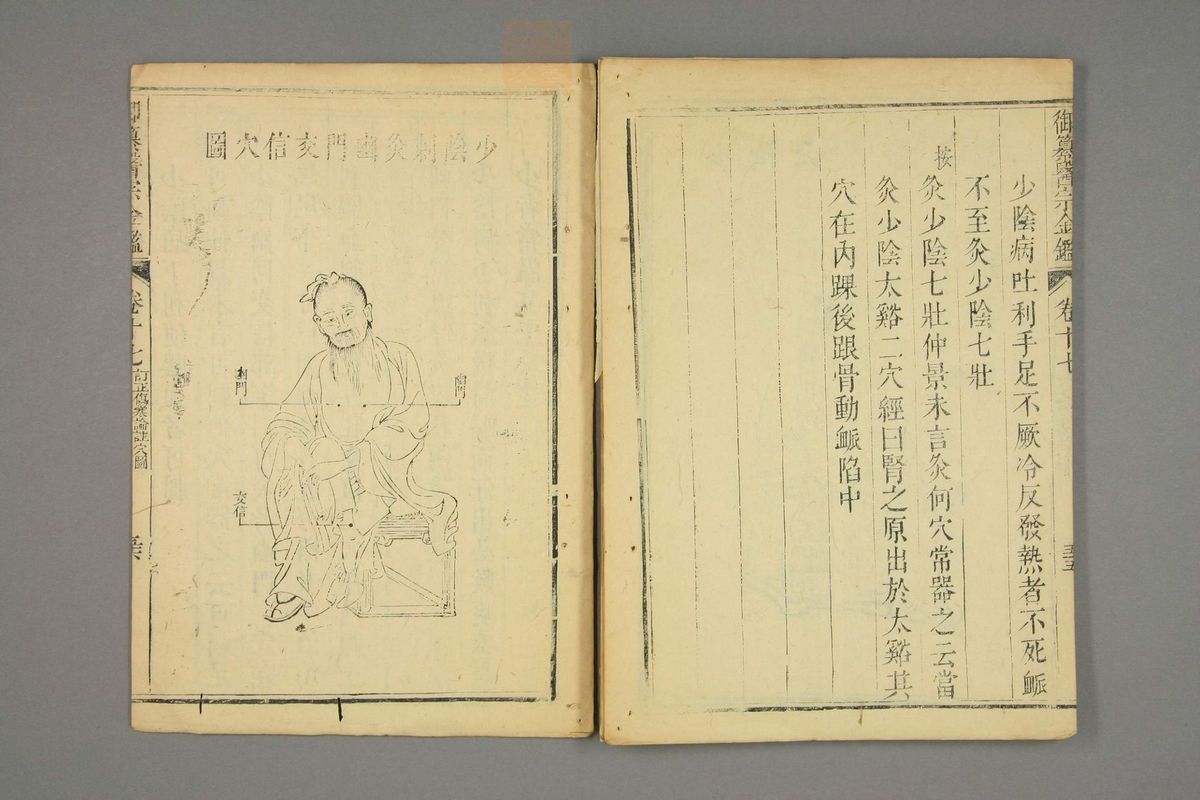 御纂醫宗金鑑
卷十七
五十五
少陰病吐利手足不厥冷反發熱者不死脈
不至灸少陰七壯
按
灸少陰七壯仲景未言灸何穴常器之云當
灸少陰太谿二穴經曰腎之原出於太谿其
穴在內踝後跟骨動脈陷中
少陰刺灸幽門交信穴圖
幽門
幽門
交信
御纂醫宗金鑑
卷十七
訂正傷寒論註穴圖